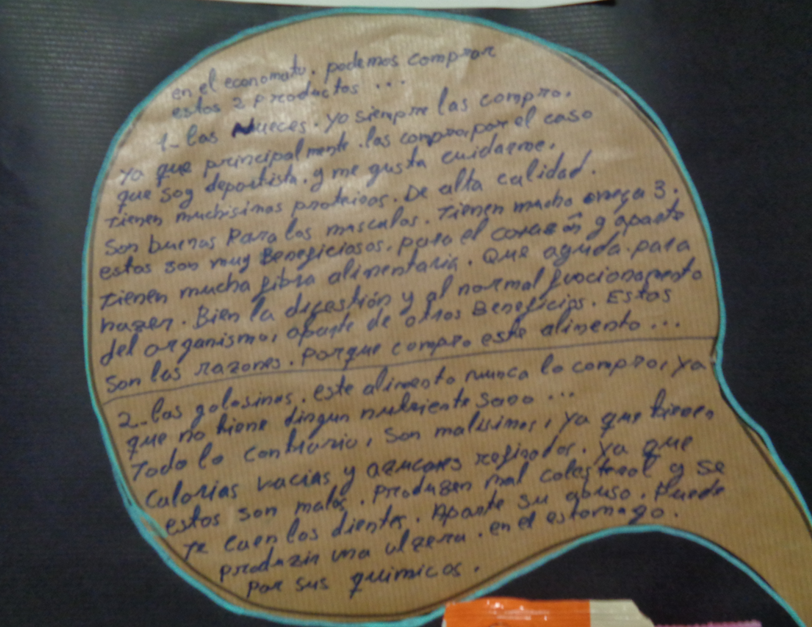 en el economato. podemos comprar
estos 2 productos ...
1- las Nueces. yo siempre las compro.
ya que principalmente. las compro. por el caso
que soy deportista. y me gusta cuidarme.
tienen muchisimas proteinas. De alta calidad.
son buenas para los musculos. Tienen mucho omega 3.
estos son muy Beneficiosos. para el corazón y aparte
tienen mucha fibra alimentaria. que ayuda. para
hazer. Bien la digestión y al normal funcionamiento
del organismo, aparte de otros Beneficios. Estos
son las razones. Porque compro este alimento ...
2- las golosinas. este alimento nunca lo compro, ya
que no tiene dingun nutriente sano ...
Todo lo contrario, son malisimas, ya que tienen
calorias vacias y azucares refinados. ya que
estos son malos. Produzen mal colesterol y se
te caen los dientes. Aparte su abuso. Puede
produzir una ulzera. en el estomago.
por sus quimicos.